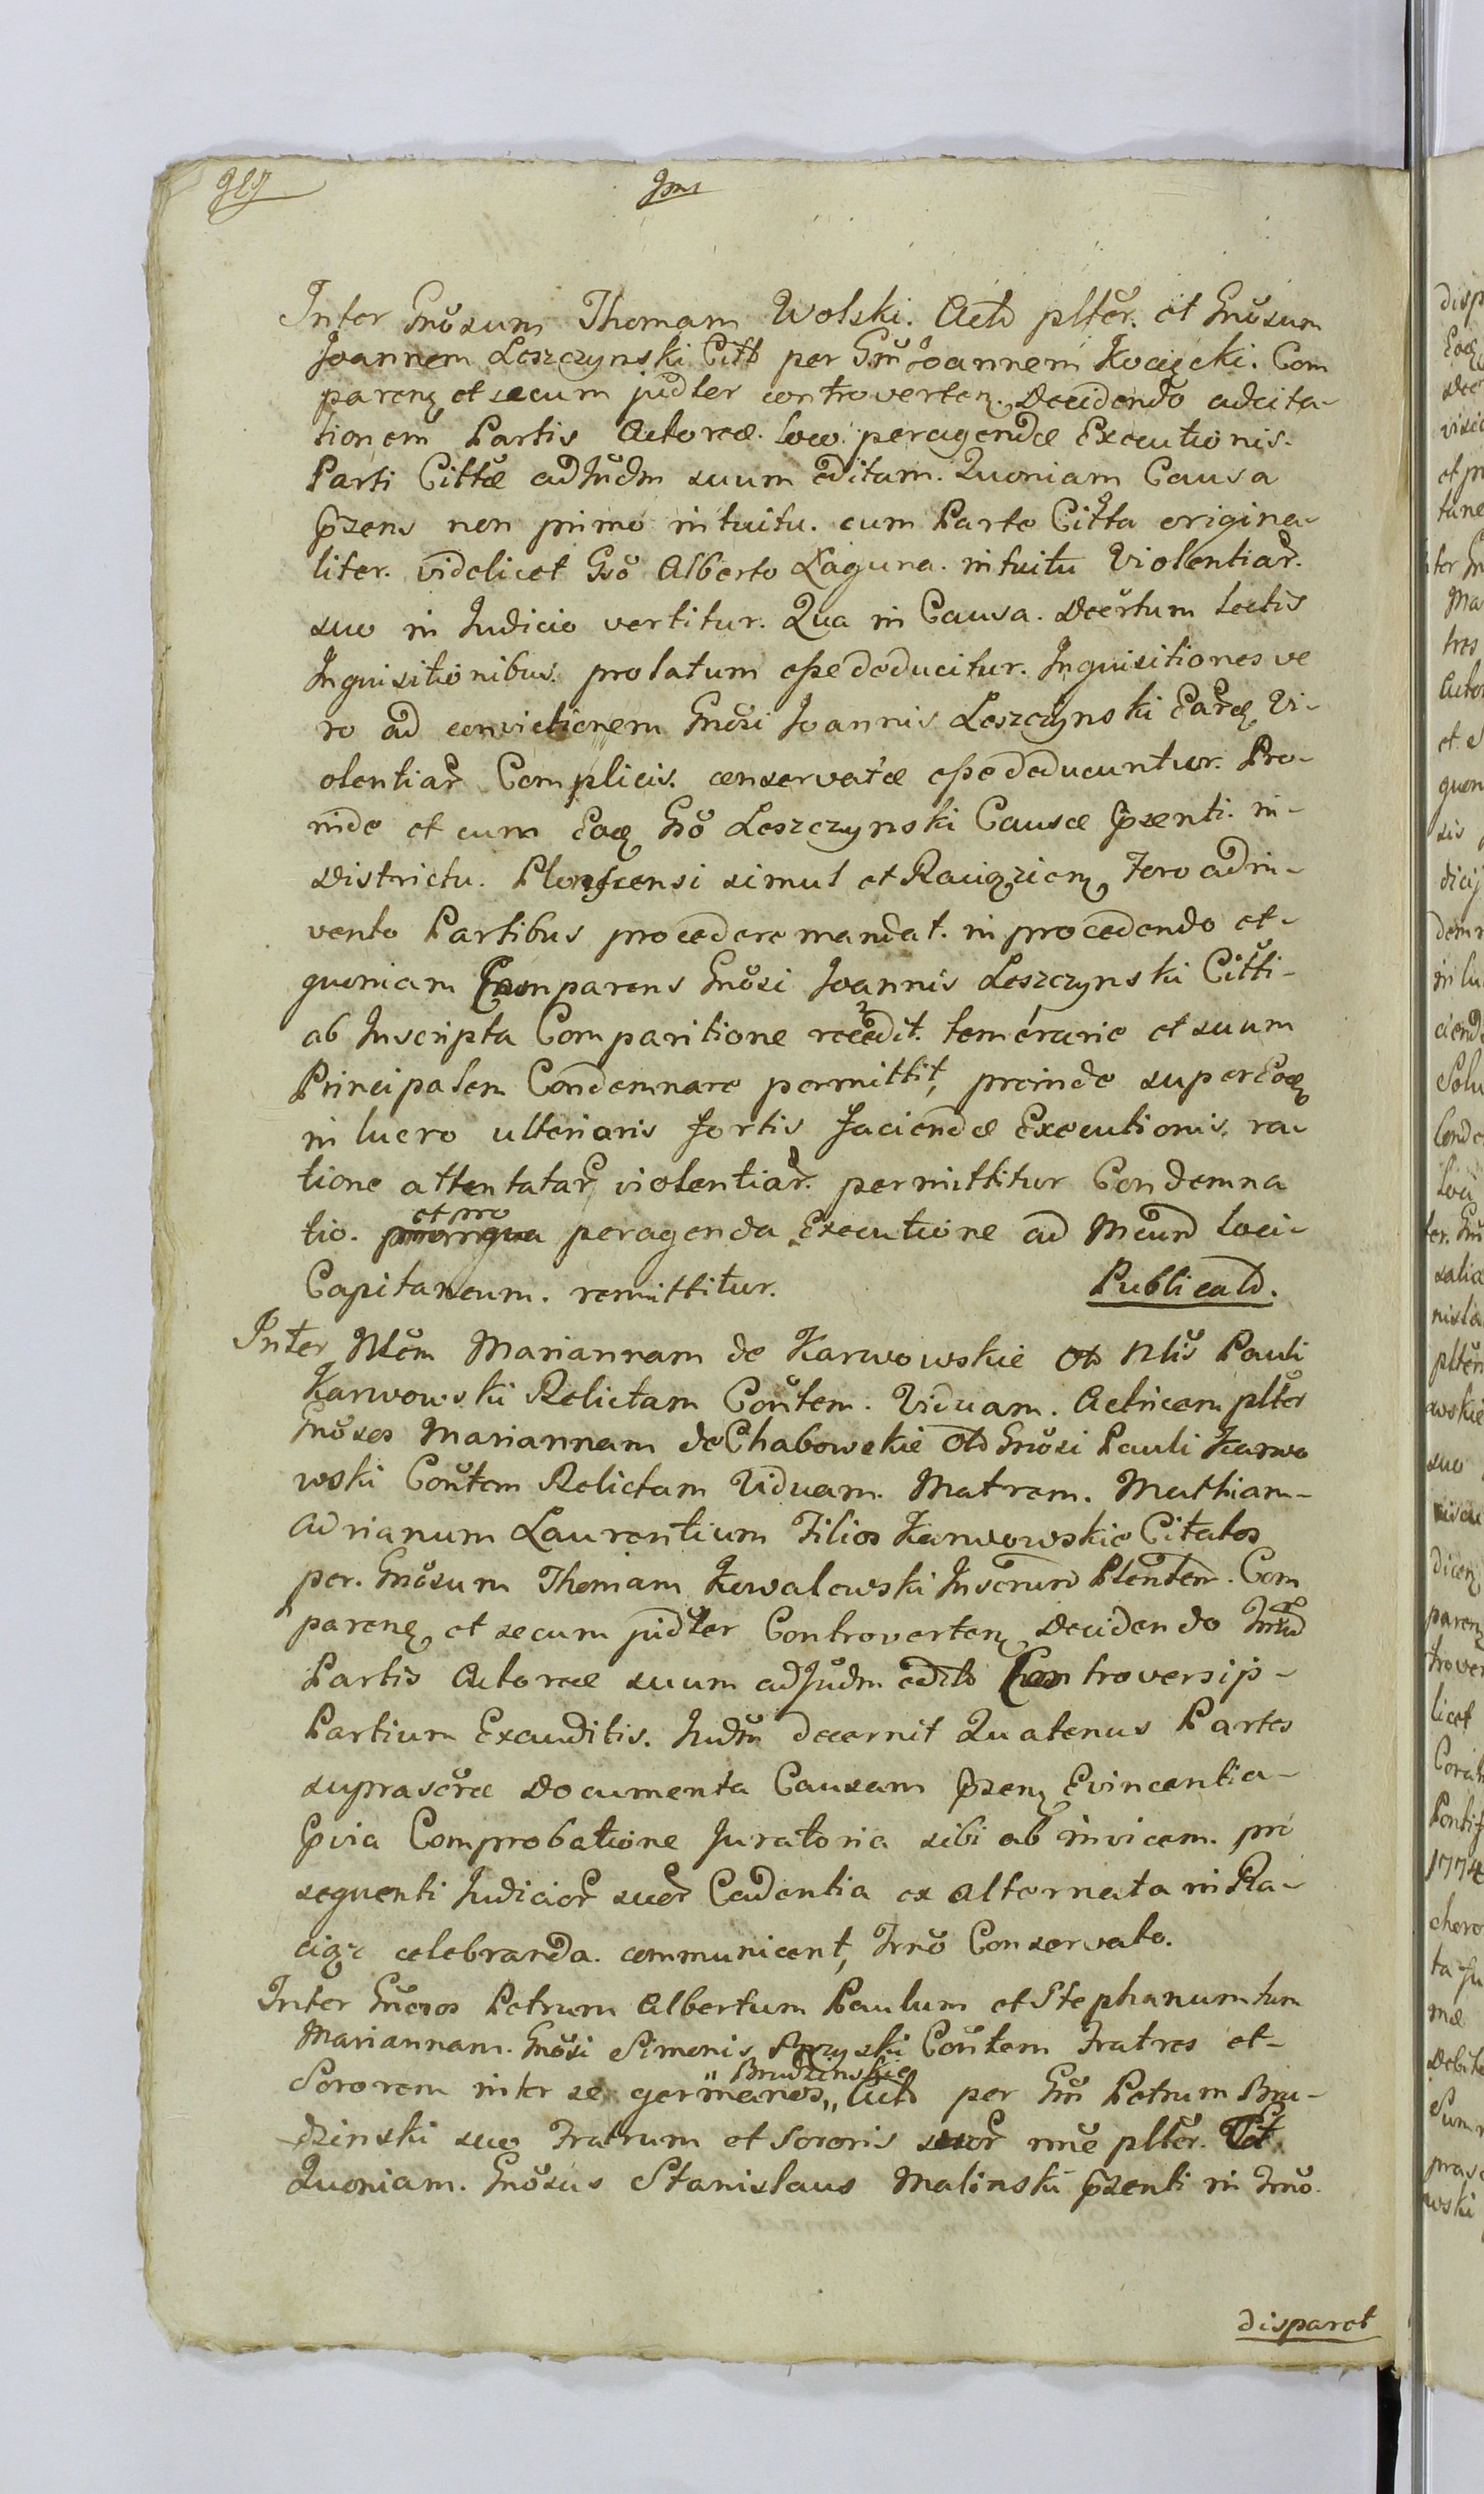 Inter Gnõsum Thomam Wolski. Actõ pltẽr. et Gnõsum
Joannem Leszczynski Cittõ per Gñm Joannem Kocięcki. Com
parenq et secum judlẽr controverten. Decidendo adcita-
tionem Partis Actoreæ. loco peragendæ Executionis.
Parti Cittæ adJudm suum editam. Quoniam Causa
Pzens non primo intuitu. cum Parte Citta origina-
liter. videlicet Gsõ Alberto Laguna. intuitu Violentiar.
suo in Judicio vertitur. Qua in Causa. Decrtum lectis
Inquisitionibus. prolatum esse deducitur. Inquisitiones ve
ro ad convictionem Gnõsi Joannis Leszczynski Earq Vi-
olentiar Complicis. conservatæ esse deducuntur. Pro-
inde et cum Eoq Gsõ Leszczynski Causæ Pzenti. in-
Districtu. Plonscensi simul et Raciązien Foro adin-
vento Partibus procedere mandat. in procedendo et-
quoniam Comparens Gnõsi Joannis Leszczynski Citti-
ab Inscripta Comparitione recedit. temerarie et suum
Principalem Condemnare permittit, proinde super Eoq
in lucro ulterioris fortis faciendæ Executionis. ra-
tione attentatar violentiar. permittitur Condemna
tio. et pro qua peragenda Executione ad Mcum loci-
Capitaneum. remittitur. Publicatõ.
Inter Nlẽm Mariannam de Karwowskie Otõ Nlis Pauli
Karwowski Relictam Coñtem. Viduam. Actricem pltẽr
Gnõsos Mariannam de Chabowskie Otõ Gnõsi Pauli Karwo
wski Coñtem Relictam Viduam. Matrem. Mathiam-
Adrianum Laurentium Filios Karwowskie Citatos
per. Gnõsum Thomam Kowalewski Inscrum Plentem. Com
parenq et secum judlẽr Controverten Decidendo
Partis Actoreæ suum adJudm editõ Controversijs-
Partium Exauditis. Judm decernit Quatenus Partes
suprascræ Documenta Causam Pzen Evincentia-
Pvia Comprobatione Juratoria sibi ab invicem. pro
sequenti Judicior suor Cadentia ex alternata in Ra-
ciąz celebranda. communicent, Trnõ Conservato.
Inter Gñosos Petrum Albertum Paulum et Stephanum tum
Mariannam. Gnõsi Simonis Coñtem Fratres et-
Sororem inter se germanos, Brudzinskie Actõ per Gñm Petrum Bru-
dzinski suo Fratrum et Sororis suor nne pltẽr.
Quoniam. Gnõsus Stanislaus Malinski Pzenti in Trnõ.
disparet